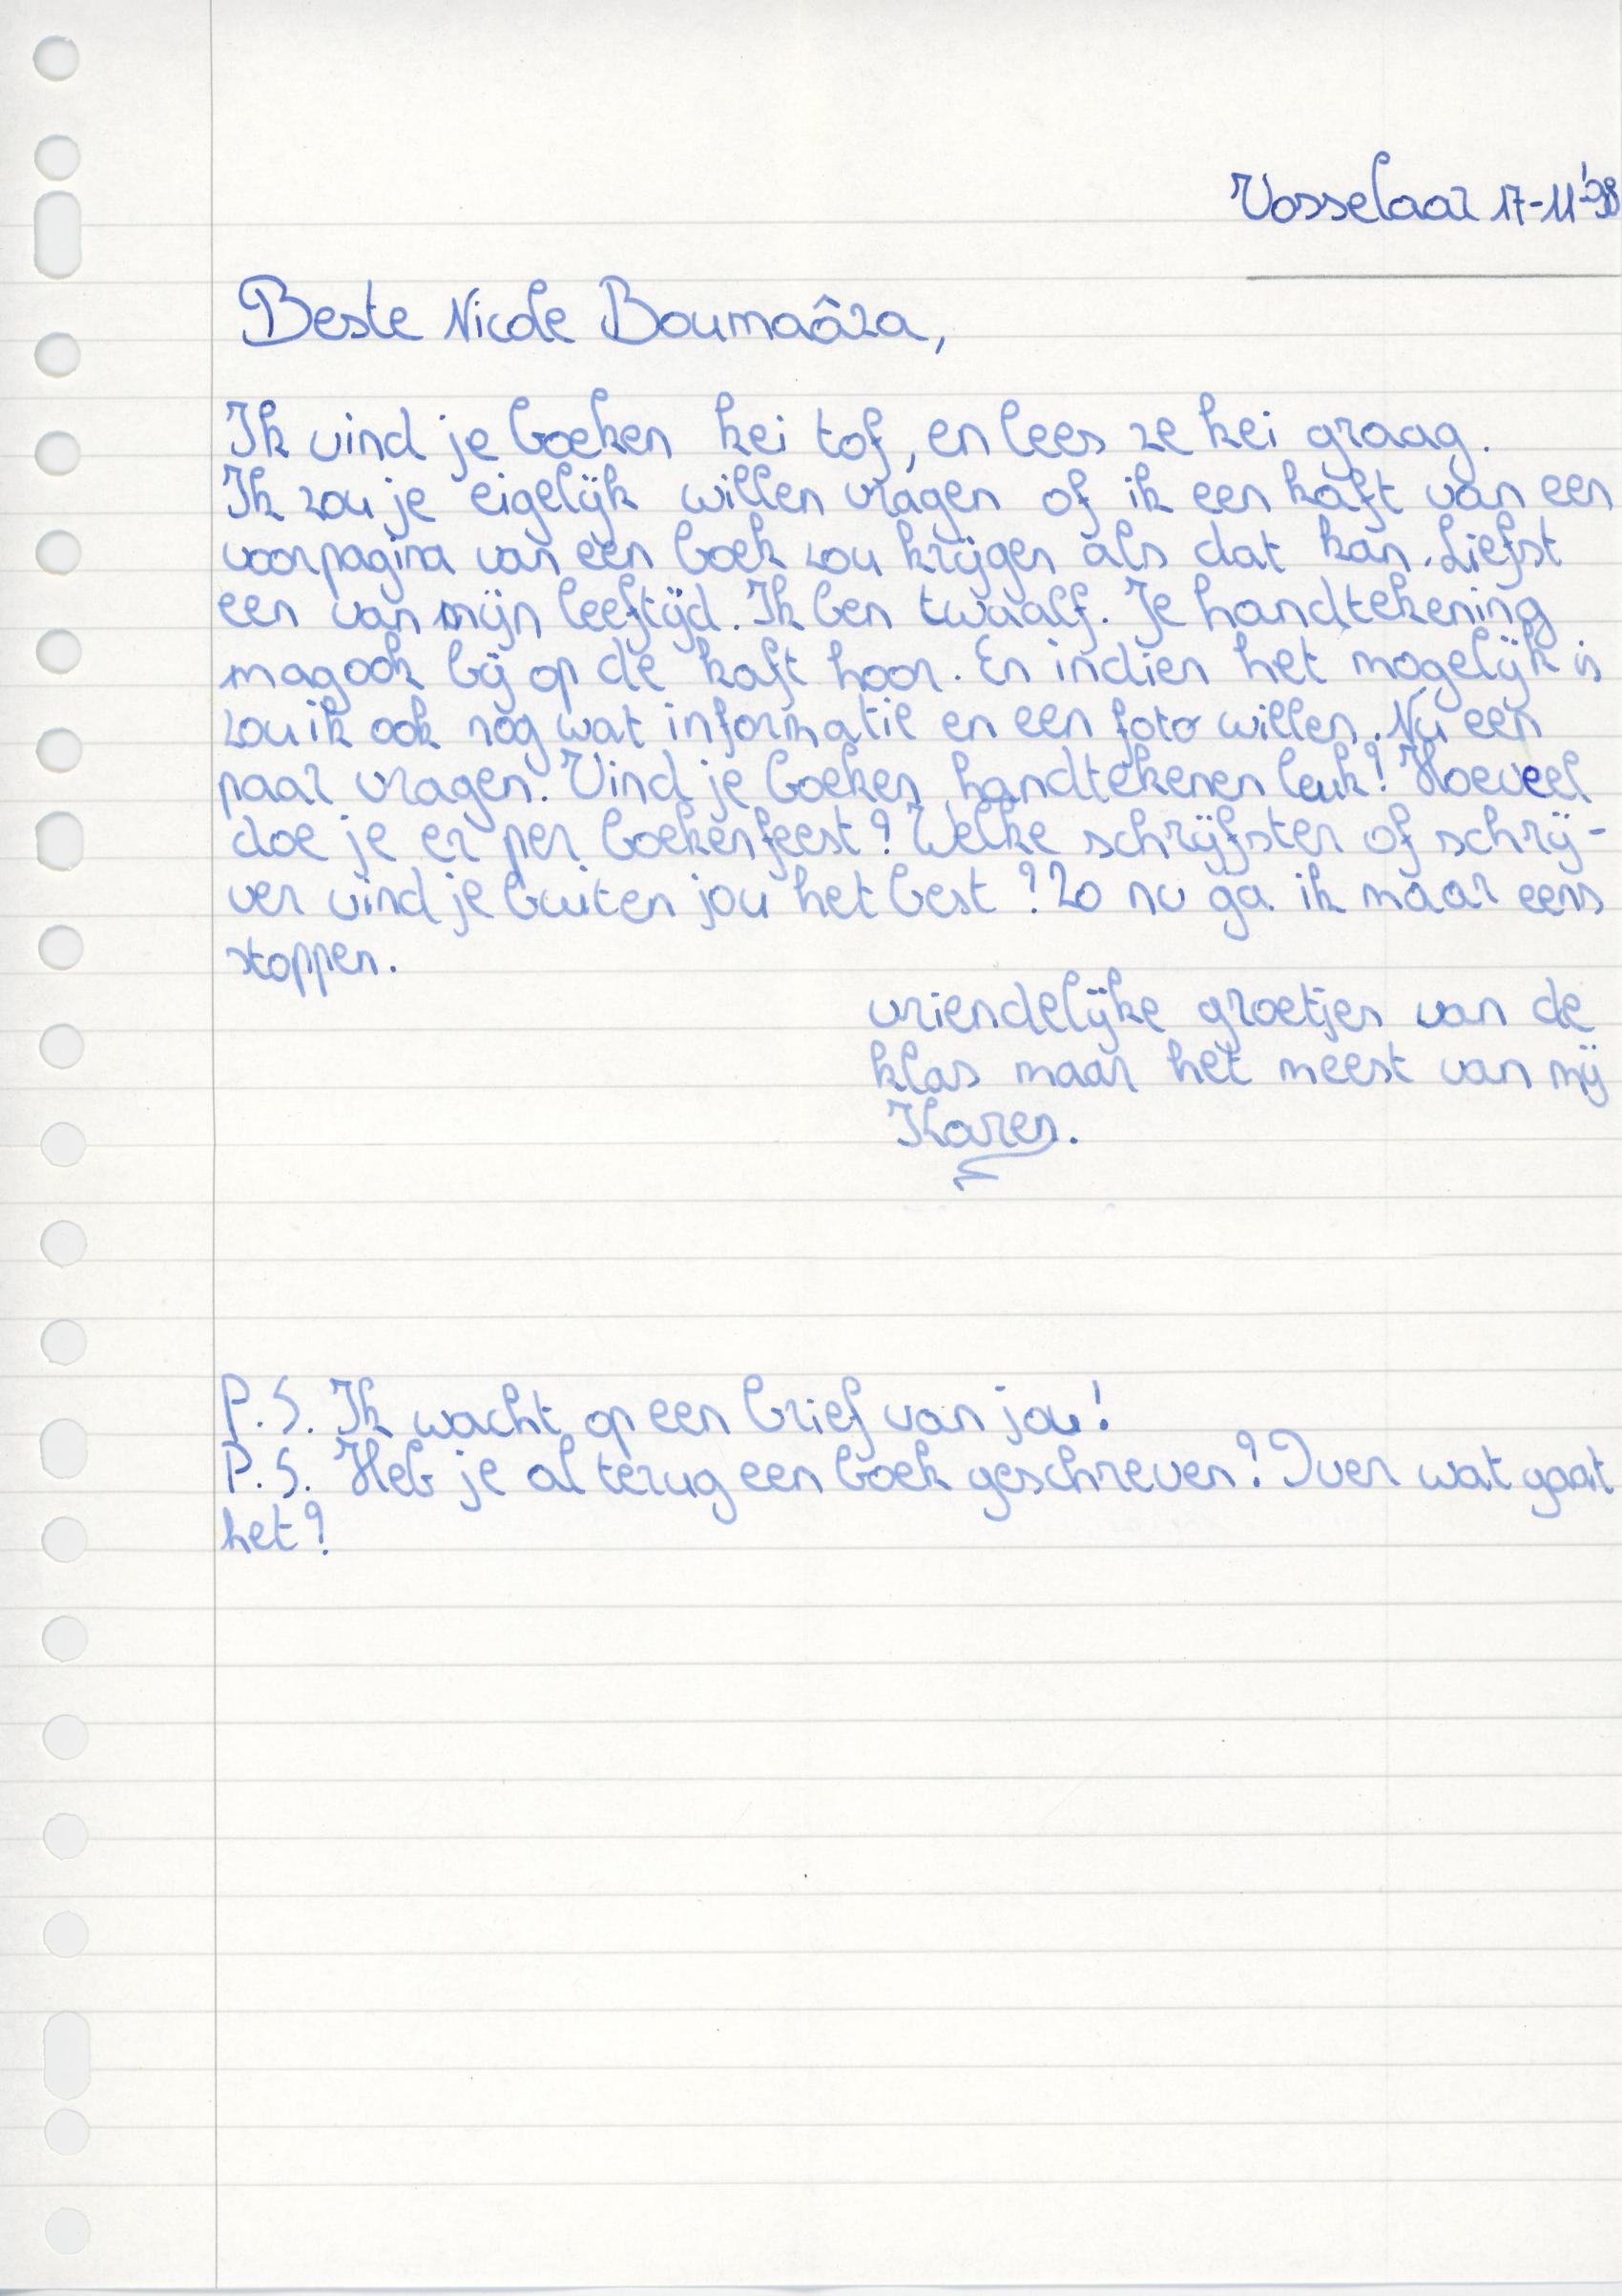 Vosselaar 17-11-'98
Beste Nicole Boumaâza,
Ik vind je boeken kei tof, en lees ze kei graag.
Ik zou je eigelijk willen vragen of ik een kaft van een
voorpagina van een boek zou krijgen als dat kan. Liefst
een van mijn leeftijd. Ik ben twaalf. Je handtekening
mag ook bij op de kaft hoor. En indien het mogelijk is
zou ik ook nog wat informatie en een foto willen. Nu een
paar vragen. Vind je boeken handtekenen leuk? Hoeveel
doe je er per boekenfeest? Welke schrijfster of schrij-
ver vind je buiten jou het best? Zo nu ga ik maar eens
stoppen.
vriendelijke groetjes van de
klas maar het meest van mij
Karen.
P.S. Ik wacht op een brief van jou!
P.S. Heb je al terug een boek geschreven? Over wat gaat
het?